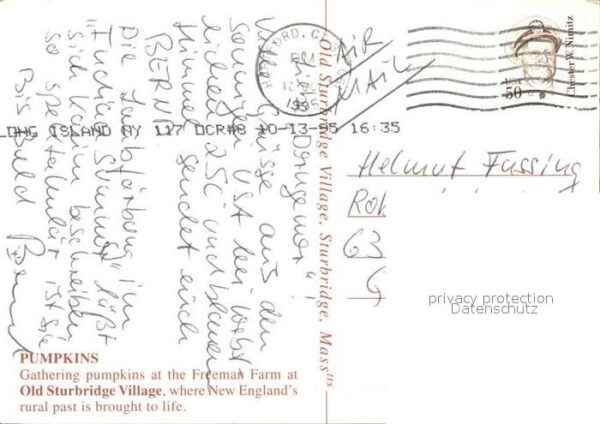 AIR
MAIL
FORD, CT
PM
1995
Chester W. Nimitz
USA
50
ONG ISLAND NY 117 DCR#8 10-13-95 16:35
Hi,
viele Grüsse aus den
sonnigen USA bei
lichen 25C und blauem
Himmel sendet euch
BERND
Die Laubfärbung im
"Indian Summer" läßt
sich kaum beschreiben
so spektakulär ist sie
Bis bald Bernd
Helmut Fussing
63
G
privacy protection
Datenschutz
Old Sturbridge Village, Sturbridge, Mass
PUMPKINS
Gathering pumpkins at the Freeman Farm at
Old Sturbridge Village, where New England's
rural past is brought to life.